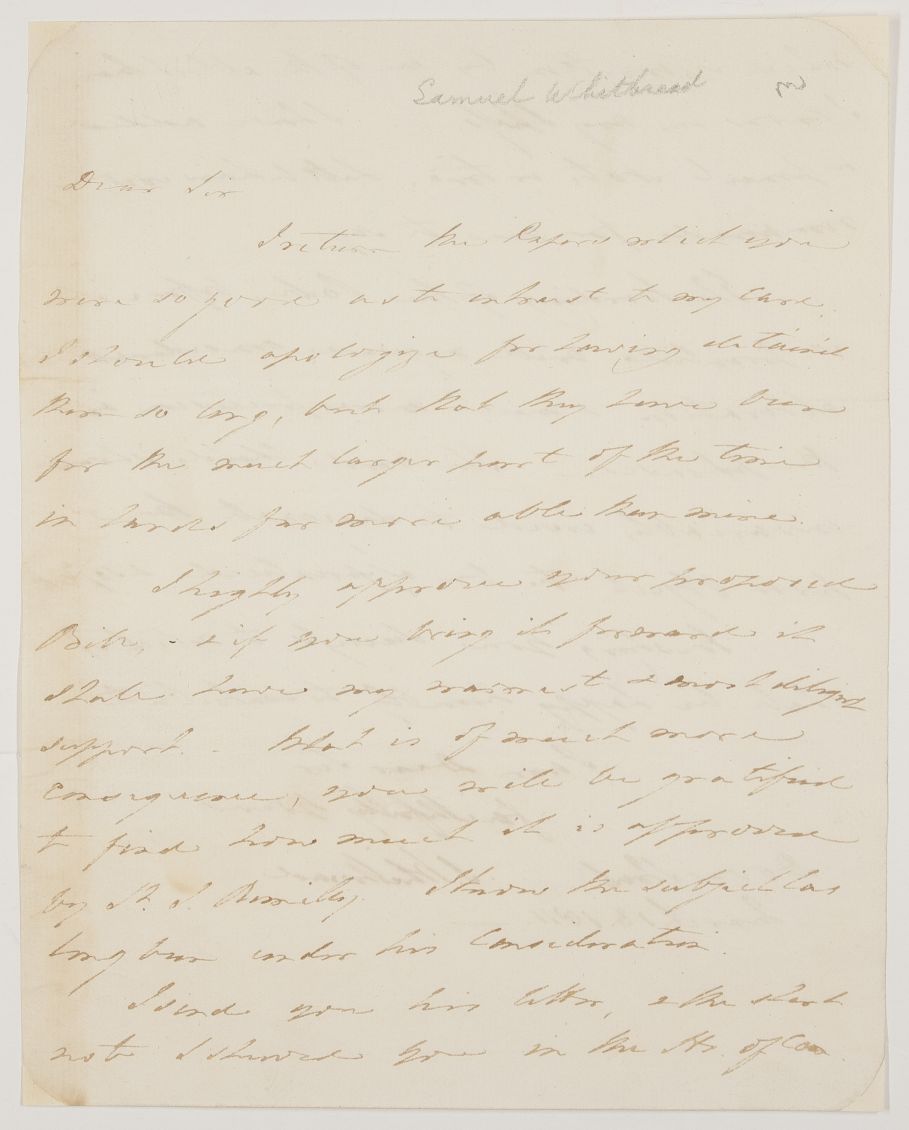 Samuel Whitbread
Dear Sir
I return the Papers which you
were so good as to intrust to my care.
I should apologize for having detained
them so long, but that they have been
for the much larger part of the time
in hands far more able than mine.
I highly approve your proposed
Bill, & if you bring it forward it
shall have my warmest & most diligent
support. - What is of much more
consequence, you will be gratified
to find how much it is approved
by Sr. S. Romilly. I know the subject has
long been under his Consideration.
I send you his letter, & the short
note I shewed you in the Ho. of Com.